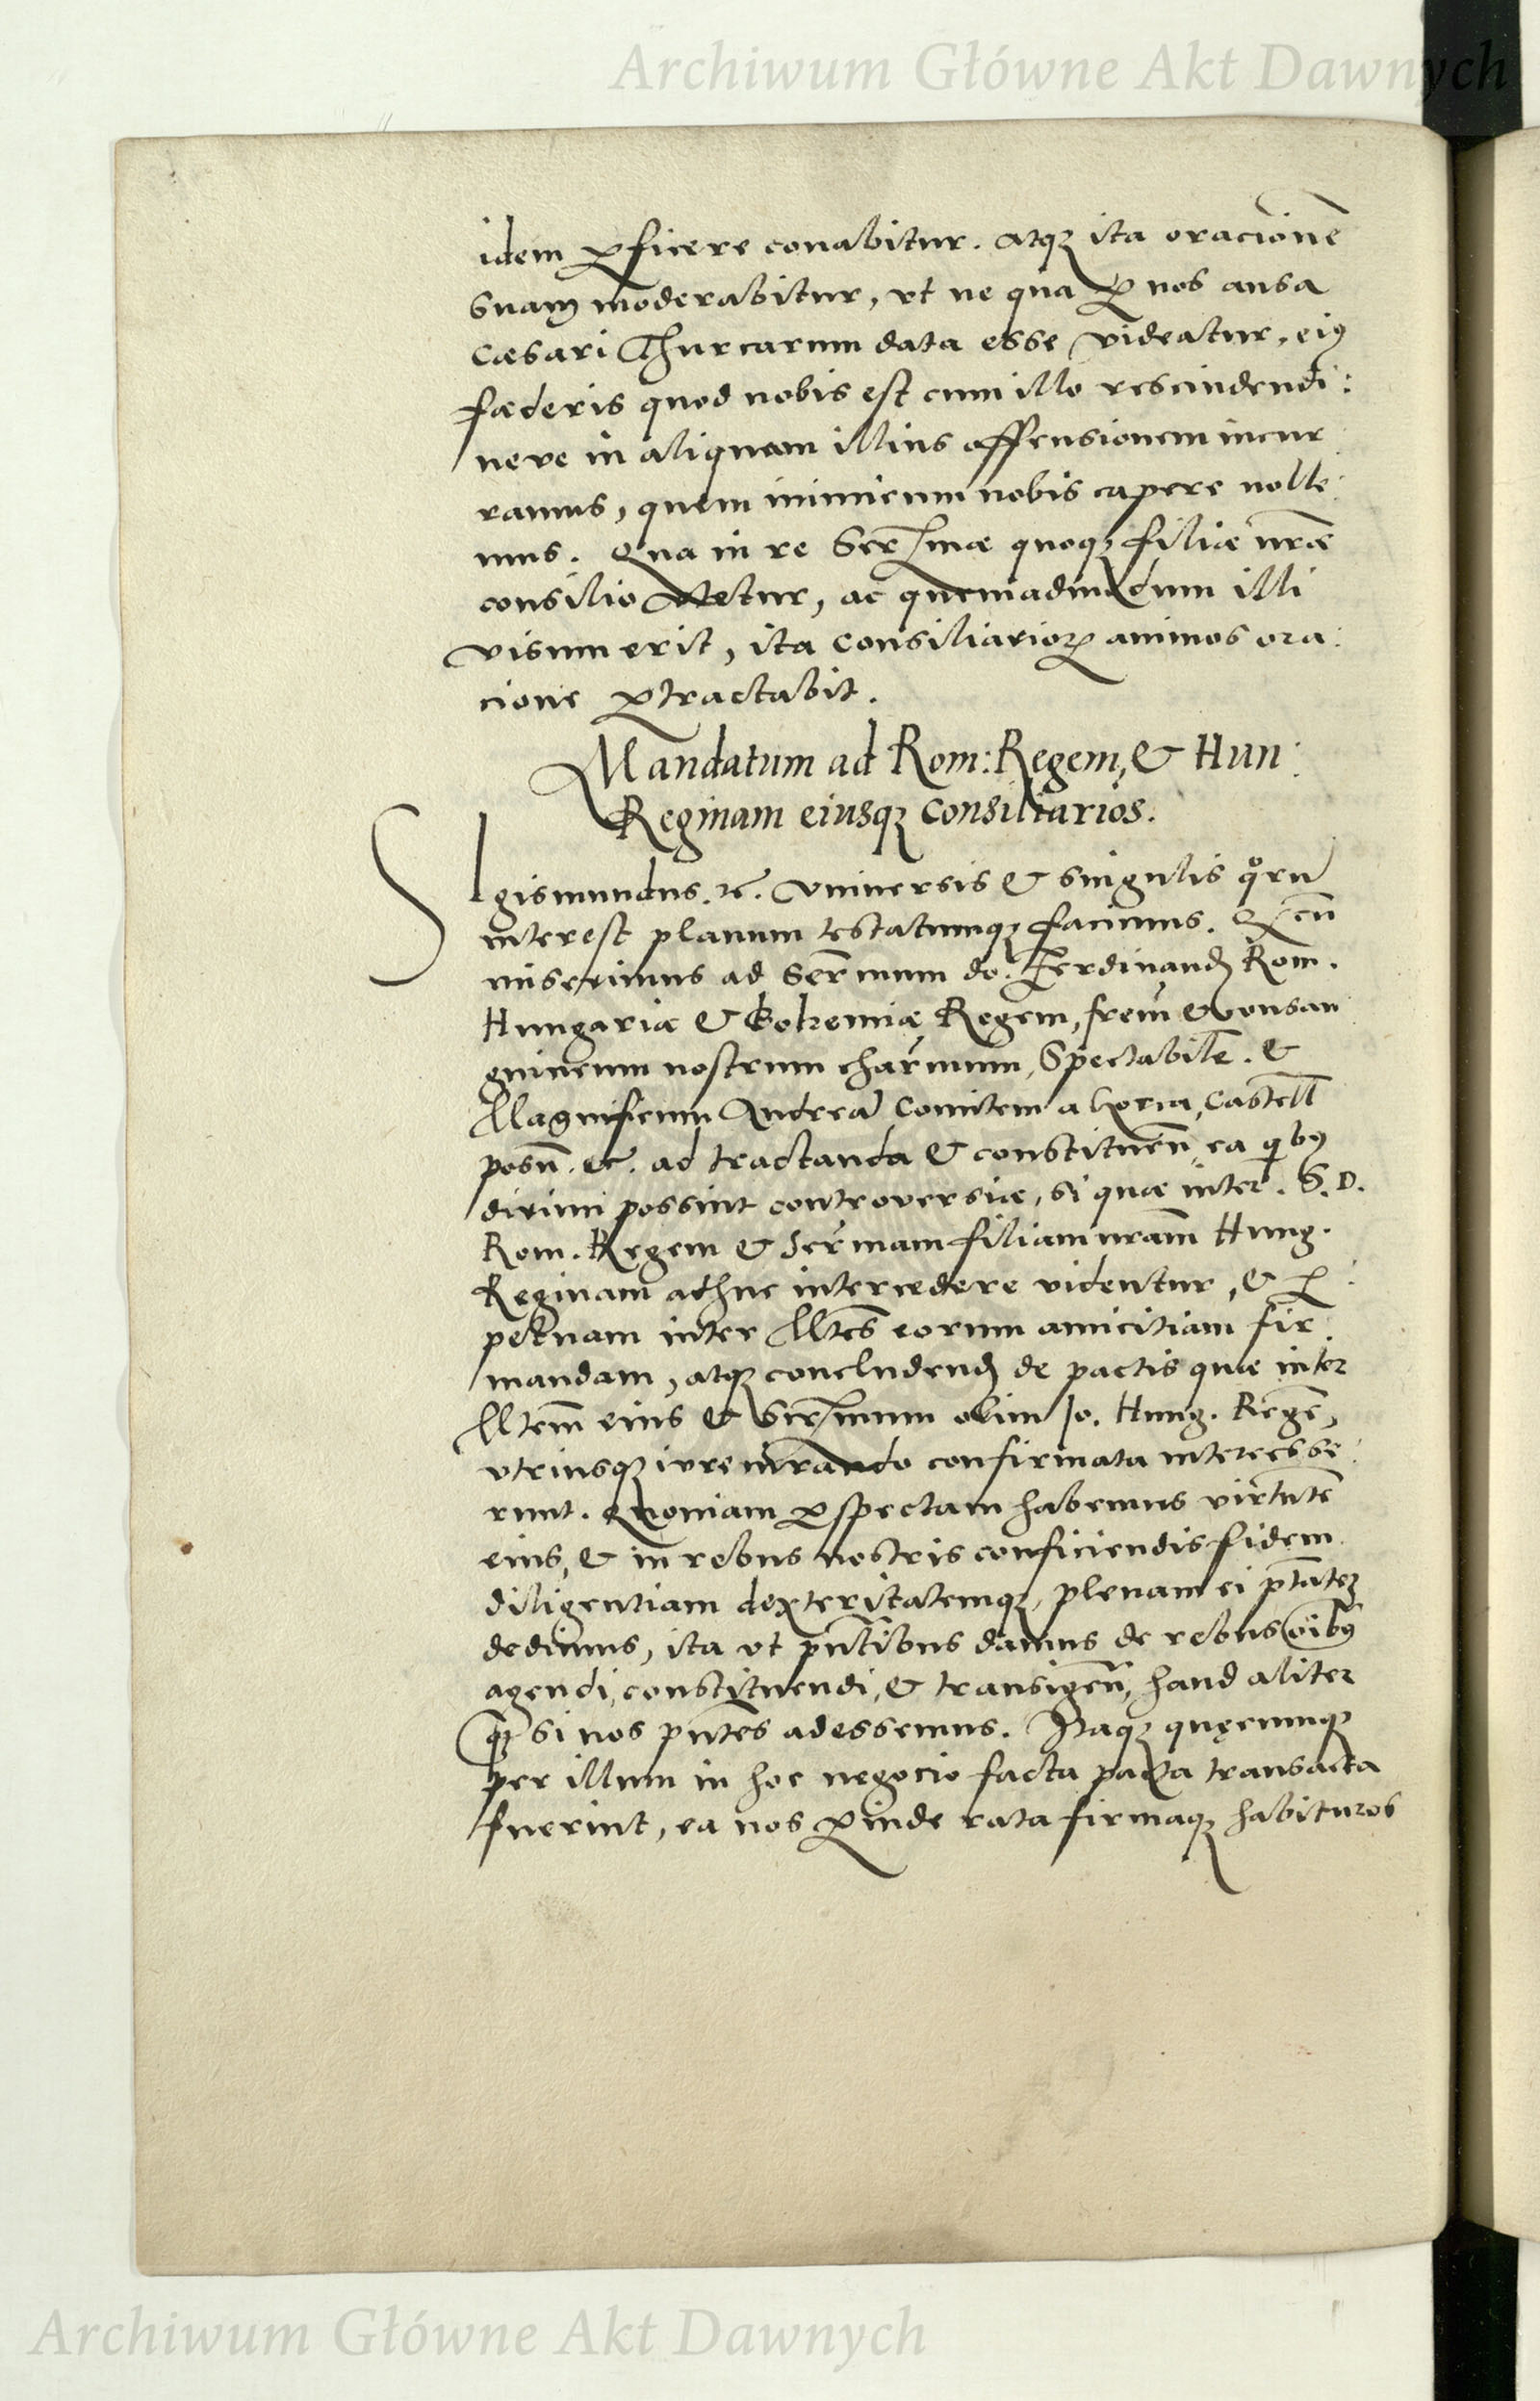 Archiwum Główne Akt Dawnych
idem ꝑficere conabitur. Atqꝫ ita oracionē
suam moderabitur, vt ne qua ꝑ nos ansa
Cæsari Thurcarum data esse videatur, eiꝰ
fæderis quod nobis est cum illo rescindendi:
neve in aliquam illius offensionem incur
ramus, quem inimicum nobis capere nolle:
mus. Qua in re Ser̃mæ quoqꝫ filiæ nr̃æ
consilio vtetur, ac quemadmodum illi
visum erit, ita Consiliarioꝝ animos ora:
cione ꝑtractabit.
Mandatum ad Rom: Regem, & Hun:
Reginam eiusqꝫ Consiliarios.
SIgismundus. ꝛc. Vniversis & singulis qͦrū
interest planum testatumqꝫ facimus. Q cū
miserimus ad Ser̃mum do. Ferdinandꝫ Rom.
Hungariæ & Bohemiæ Regem, frem̃ & consan
guineum nostrum char̃mum, Spectabilē. &
Magnificum Andreā Comitem a Gorca, Castell̃
posn̄. &c. ad tractanda & constituen̄, ea qibꝰ
dirimi possint controversiæ, si quæ inter. S. D.
Rom. Regem & Ser̃mam filiam nram̃ Hung.
Reginam adhuc intercedere videntur, & ꝑ:
petuam inter Mtes̃ eorum amicitiam fir
mandam, atqꝫ concludendꝫ de pactis quæ inter
Mtem̃ eius & Ser̃mum olim Jo. Hung. Regē,
vtriusqꝫ iureiurando confirmata intercesse:
runt. Quoniam ꝑspectam habemus virtutē
eius, & in rebus nostris conficiendis fidem
diligentiam dexteritatemqꝫ, plenam ei ptãtēꝫ
dedimus, ita vt pn̄tibus damus de rebus oībꝰ
agendi, constituendi, & transigen̄, haud aliter
qꝫ si nos pn̄tes adessemus. Itaqꝫ quęcumqꝫ
per illum in hoc negocio facta pacta transacta
fuerint, ea nos ꝑinde rata firmaqꝫ habituros
Archiwum Główne Akt Dawnych